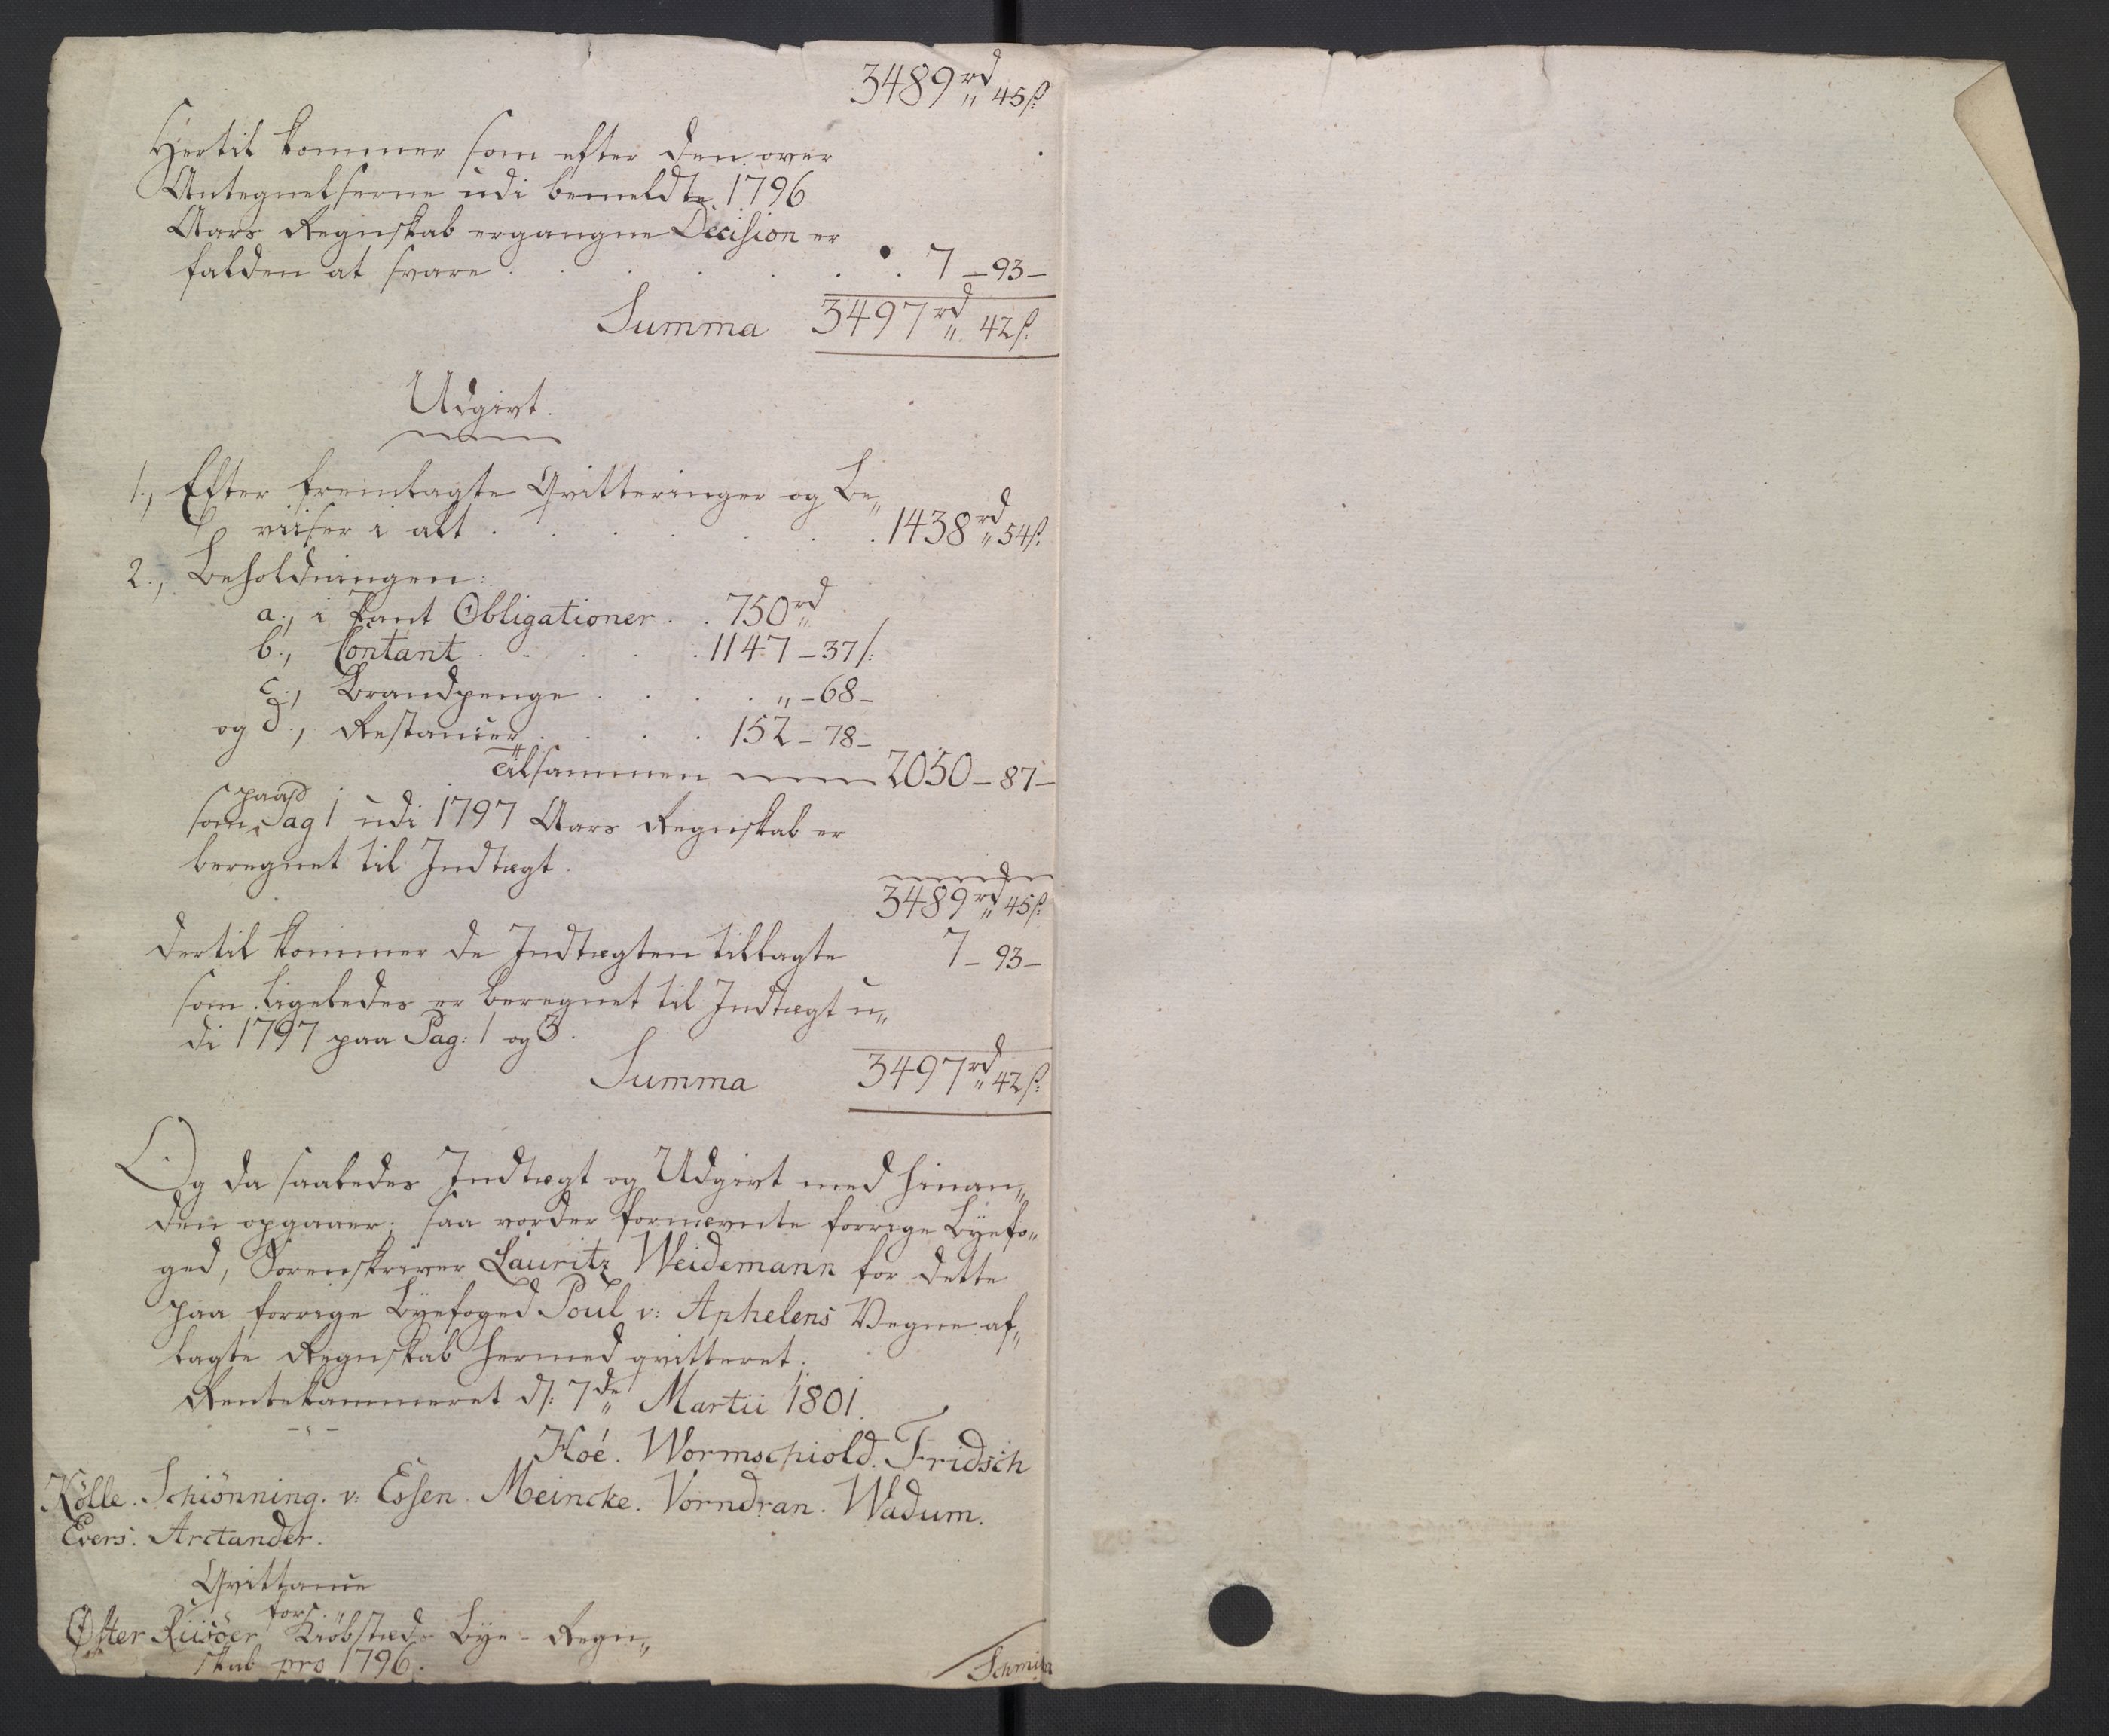 3489 rd „ 45 ß:
Hertil kommer som efter den over
Antegnelserne udi bemeldte 1796
Aars Regnskab ergangne Decision er
falden at svare . . . . . . . 7 – 93 –
Summa 3497 rd „ 42 ß:
Udgivt.
1., Efter fremlagte Qvitteringer og Be„
viiser i alt . . . . . . 1438 rd „ 54 ß:
2., Beholdningen:
a., i Pant Obligationer . . 750 rd „
b., Contant . . . . . 1147 – 37 ß:
c., Brandpenge . . . . „ – 68 –
og d., Restancer . . . . 152 – 78 –
Tilsammen 2050 – 87 –
paa
som Pag 1 udi 1797 Aars Regnskab er
beregnet til Indtægt.
3489 rd „ 45 ß:
dertil kommer de Indtægten tillagte 7 – 93 –
som ligeledes er beregnet til Indtægt u„
di 1797 paa Pag: 1 og 3.
Summa 3497 rd „ 42 ß:
Og da saaledes Indtægt og Udgivt med hinan„
den opgaaer; saa vorder formævnte forrige Byefo„
ged, Sorenskriver Lauritz Weidemann for dette
paa forrige Byefoged Poul v: Aphelens Vegne af„
lagte Regnskab hermed qvitteret.
Rentekammeret d: 7de Martii 1801.
Hoé. Wormschiold. Fridsch
Kölle. Schiönning. v: Essen. Meincke. Vorndran. Wadum.
Evers. Arctander.
Qvittance
for
Øster Riisöer Kiöbstæds Bye-Regn„
skab pro 1796.